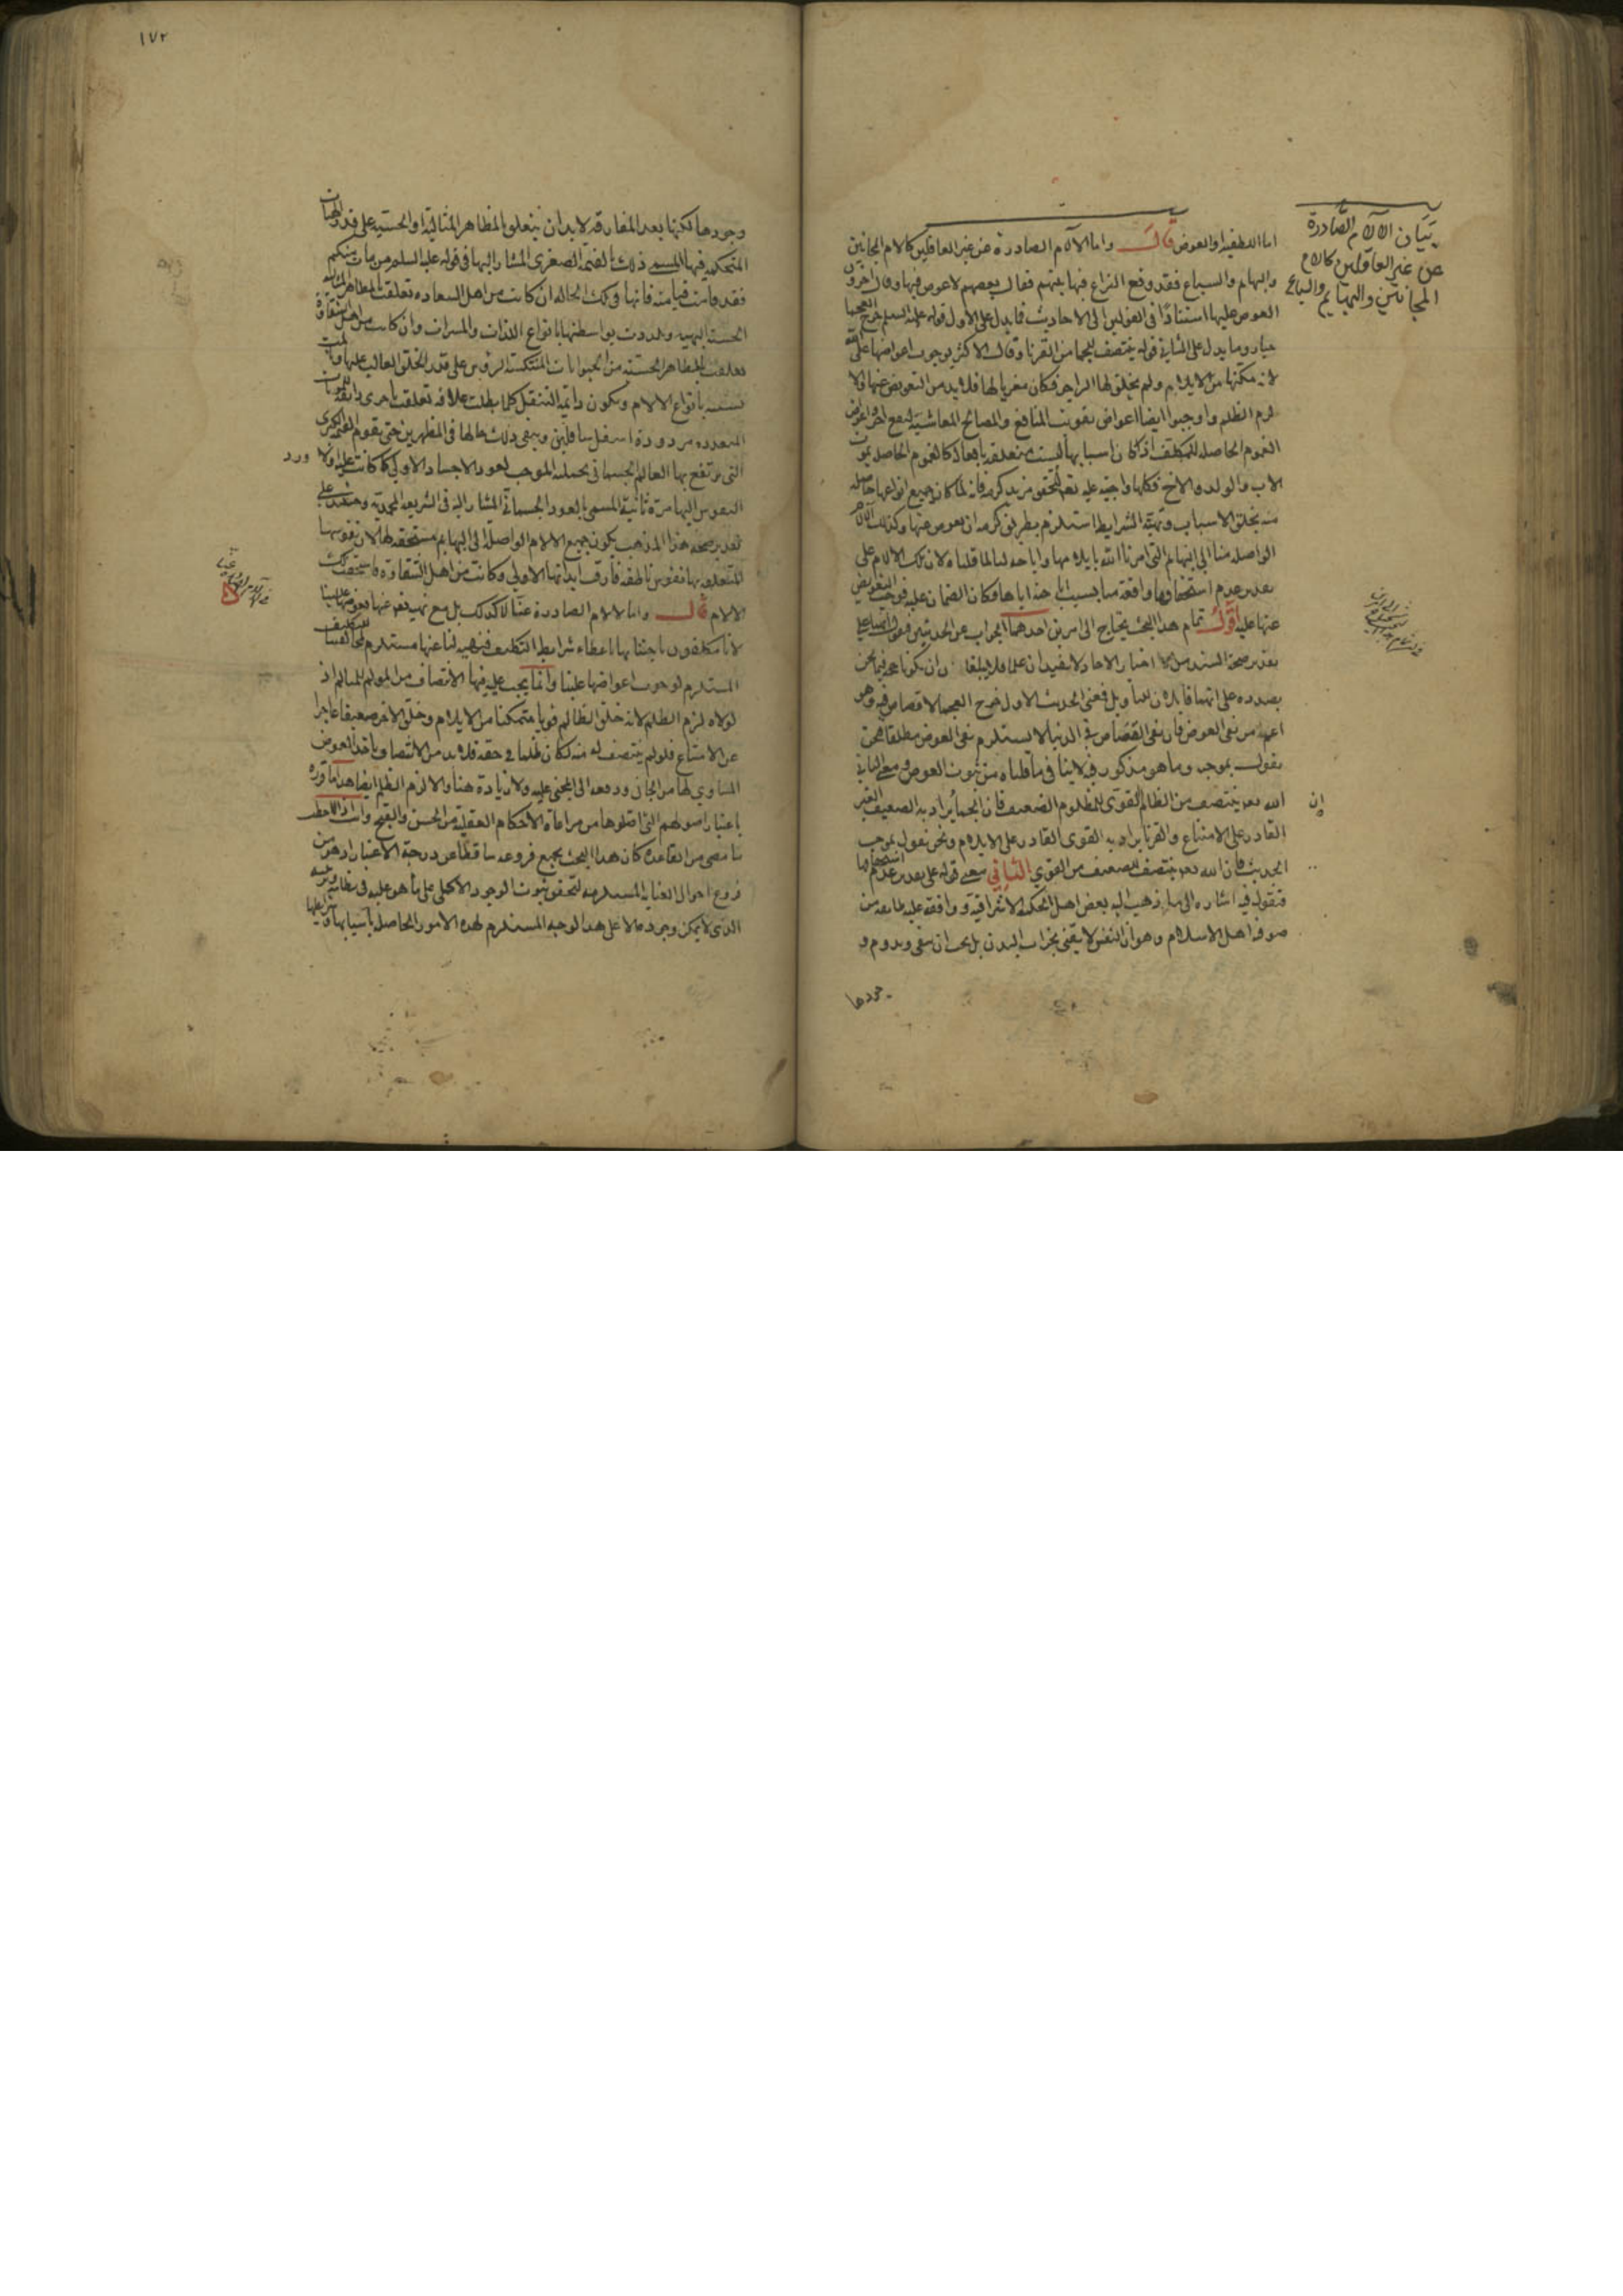 بيان الآلام الصادرة
عن غير العاقلين كالام
المجانين والبهايم والسباع
اما اللطفية او العوض قال واما الآلام الصادرة عن غير العاقلين كالام المجانين
والبهايم والسباع فقد وقع النزاع فيها بينهم فقال بعضهم لا عوض فيها وقال اخرون
العوض عليها استنادًا في القولين الى الاحاديث فما يدل على الاول قوله عليه السلم جرح العجما
جبار وما يدل على الثاني قوله ينتصف للجما من القرنا وقال الاكثر بوجوب اعواضها على الله
لانه مكنها من الايلام ولم يخلق لها الزاجر فكان مغريا لها فلا بد من التعويض عنها والا
لزم الظلم واوجبوا ايضا اعواض تفويت المنافع والمصالح المعاشية لنفع اخر واعواض
الغموم الحاصله للمكلف اذ كان اسبابها ليست متعلقه بافعاله كالغموم الحاصله بموت
الاب والولد والاخ فكلها واجبة عليه تعالى لتحقق مزيد كرمه فانه لما كان جميع انواعها حاصله
منه بخلق الاسباب وتهيئة الشرايط استلزم بطريق كرمه ان يعوض عنها وكذلك الالام
الواصله منا الى البهايم التي امرنا الله بايلامها واباحه لنا لما قلناه لان تلك الالام على
تقدير عدم استحقاقها واقعة منا بسبب اباحته اياها فكان الضمان عليه فوجب التعويض
عنها عليه اقول تمام هذا البحث يحتاج الى امرين احدهما الجواب عن الحديثين فنقول انهما على
تقدير صحة السند من الاخبار الاحاد لا يفيدان علما فلا يبلغان ان يكونا حجة فيما نحن
بصدده على انهما قابلان للتاويل فمعنى الحديث الاول جرح العجما لا قصاص فيه وهو
اعم من نفي العوض فان نفي القصاص في الدنيا لا يستلزم نفي العوض مطلقا فنحن
نقول بموجبه وما هو مذكور فيه لا ينافي ما قلناه من ثبوت العوض ومعنى الثاني
ان
الله تعالى ينتصف من الظالم القوي للمظلوم الضعيف فان الجما يراد به الضعيف الغير
القادر على الامتناع والقرنا يراد به القوي القادر على الايلام ونحن نقول بموجب
الحديث فان الله تعالى ينتصف للضعيف من القوي الثاني معنى قوله على تقدير عدم استحقاقها
فنقول فيه اشاره الى ما ذهب اليه بعض اهل الحكمة الاشراقية ووافقه عليه طايفه من
صوفية اهل الاسلام وهو ان النفس لا يفنى بخراب البدن بل يجب ان يبقى ويدوم و
وجودها
١٧٢
وجودها لكنها بعد المفارقه لا بد ان يتعلق بالمظاهر المثالية او الحسية على قدر الهيات
المتحكمه فيها المسمى ذلك بالقيمة الصغرى المشار اليها في قوله عليه السلم من مات منكم
فقد قامت قيامته فانها في تلك الحاله ان كانت من اهل السعاده تعلقت بالمظاهر المثاليه
الحسنه البهيه وتلذذت بواسطتها بانواع اللذات والمسرات وان كانت من اهل الشقاوة
تعلقت بالمظاهر الحسيه من الحيوانات المنتكسة الرؤس على قدر الخلق الغالب عليها
بانواع الالام ويكون دايمة التنقل كلما بطلت علاقه تعلقت باخرى
المتعدده مردودة اسفل سافلين ويبقى ذلك حالها في المظهرين حتى يقوم القيمة الكبرى
التي يرتفع بها العالم الجسماني بجملته الموجب لعود الاجساد الاولى كما كانت عليه اولا ورد
النفوس اليها مرة ثانية المسمى بالعود الجسماني المشار اليه في الشريعه المحمدية وحينئذ على
تقدير صحة هذا المذهب يكون جميع الالام الواصلة الى البهايم مستحقه لها لان نفوسها
المتعلقه بها نفوس ناطقه فارقت ابدانها الاولى وكانت من اهل الشقاوه فاستحقت تلك
الالام قال واما الالام الصادرة عنا لا كذلك بل مع نهيه تعالى عنها عوضها علينا
لانا مكلفون باجتنابها باعطاء شرايط التكليف فنهيه لنا عنها مستلزم لمخالفتنا للتكليف
المستلزم لوجوب اعواضها علينا وانما يجب عليه فيها الانتصاف من المولم للمتالم اذ
لولاه لزم الظلم لانه خلق الظالم قويا متمكنا من الايلام وخلق الاخر ضعيفا عاجزا
عن الامتناع فلو لم ينتصف له منه لكان ظلما في حقه فلا بد من الانتصاف باخذ العوض
المساوي لها من الجاني ودفعه الى المجني عليه ولا زيادة هنا والا لزم الظلم ايضا هذا ما قرره
باعتبار اصولهم التي اصلوها من مراعاة الاحكام العقلية من الحسن والقبح وانت اذا لاحظت
ما مضى من القاعده كان هذا البحث بجميع فروعه ساقطا عن درجة الاعتبار اذ هو من
فروع احوال العناية المستلزمه لتحقق ثبوت الوجود الاكمل على ما هو عليه في نظامه وترتيبه
الذي لا يمكن وجوده الا على هذا الوجه المستلزم لهذه الامور الحاصله باسبابها وشرايطها